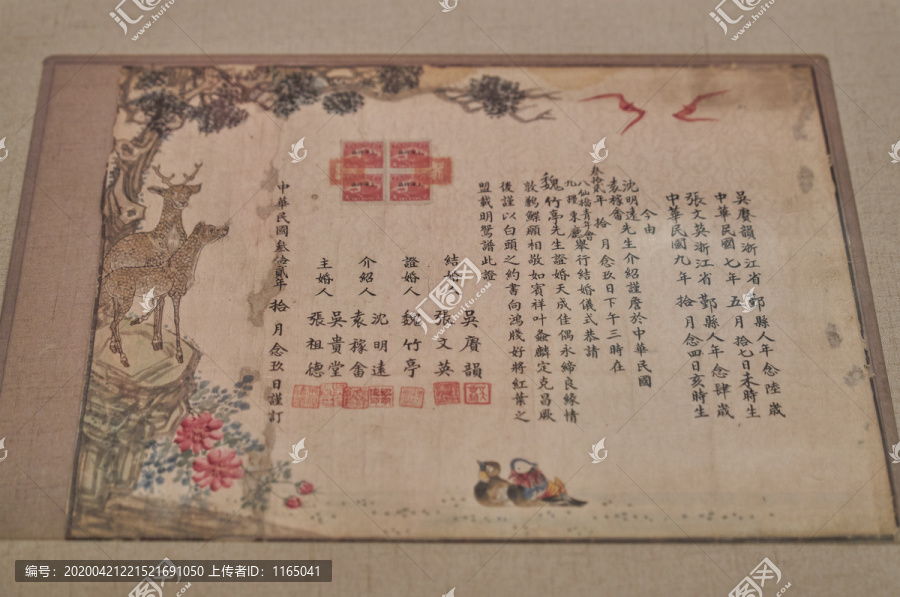 吳賡韻浙江省鄞縣人年念陸歲
中華民國七年五月十七日未時生
張文英浙江省鄞縣人年念肆歲
中華民國九年十月念四日亥時生
今由
沈明遠
袁稼畬先生介紹謹詹於中華民國
叁拾貳年拾月念玖日下午三時在
八仙橋青年會
九樓東廳舉行結婚儀式恭請
魏竹亭先生證婚天成佳偶永締良緣情
敦鶼鰈願相敬如賓祥叶螽麟定克昌厥
後謹以白頭之約書向鴻牋好將紅葉之
盟載明鴛譜此證
結婚人 吳賡韻
張文英
證婚人 魏竹亭
介紹人 沈明遠
袁稼畬
主婚人 吳貴堂
張祖德
中華民國叁拾貳年拾月念玖日謹訂
汇图网
www.huitu.com
编号：20200421221521691050 上传者ID：1165041